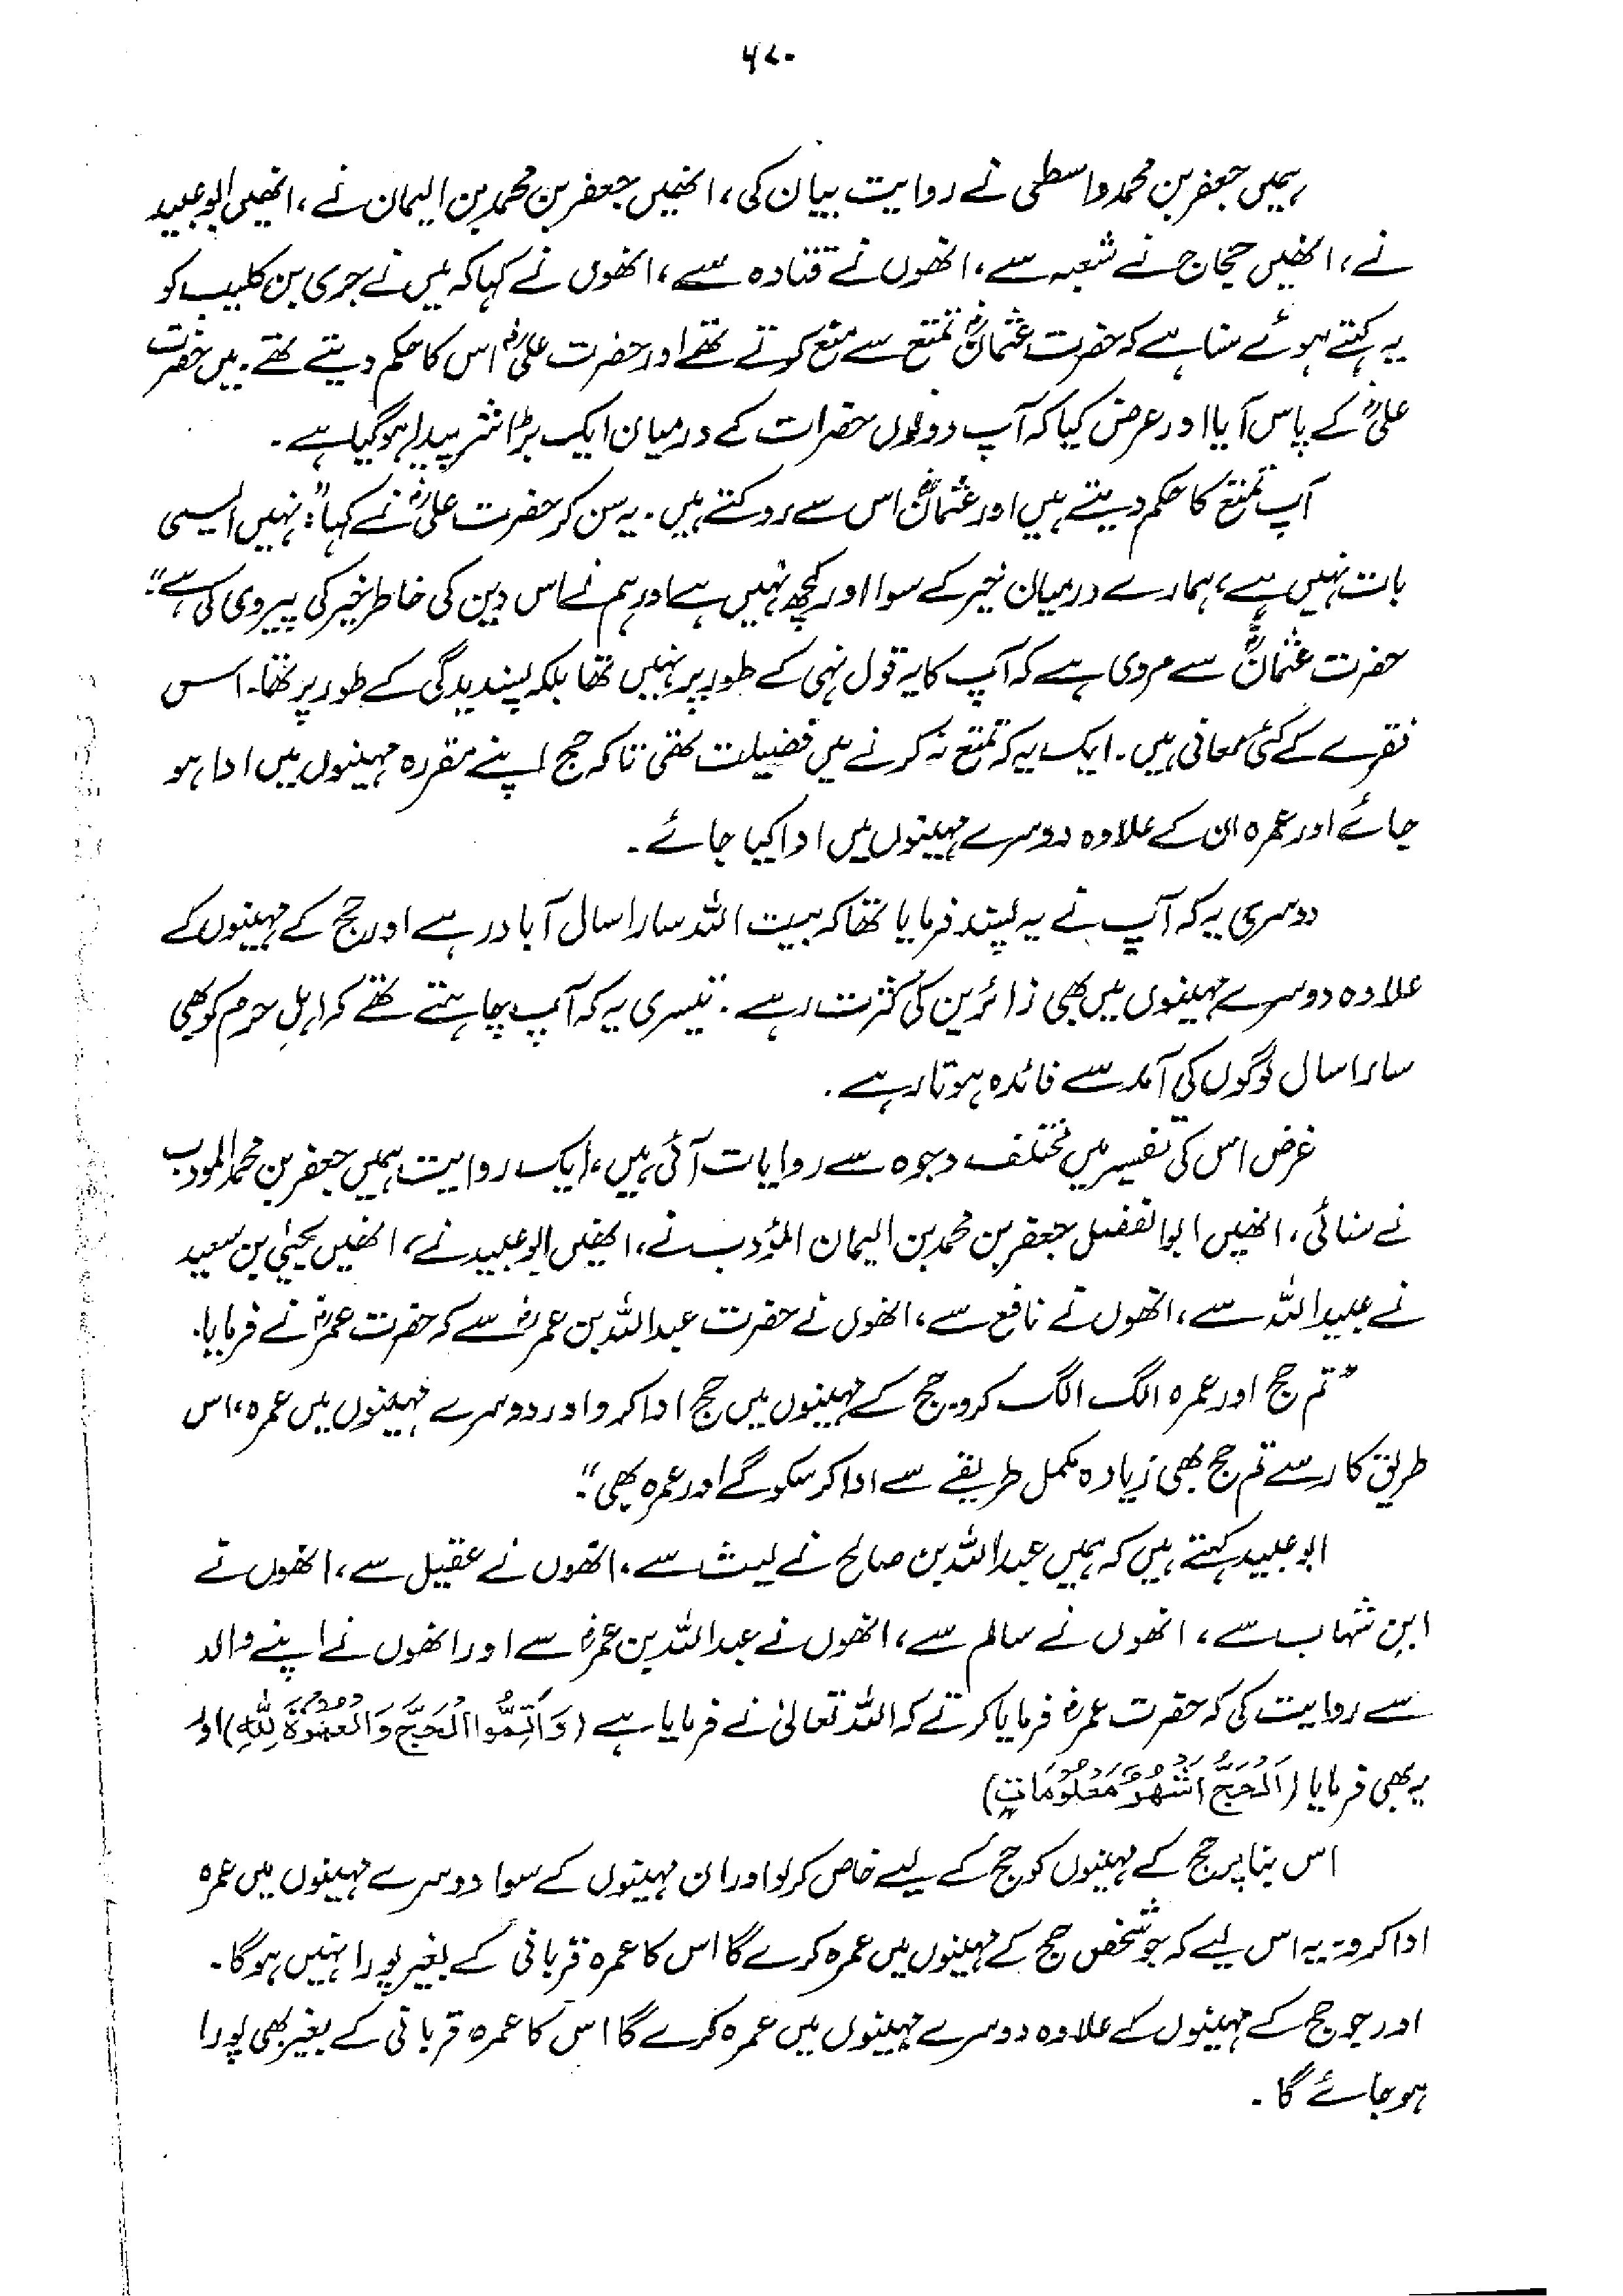 ۶۷۰
ہمیں جعفر بن محمد واسطی نے روایت بیان کی، انھیں جعفر بن محمد بن الیمان نے، انھیں ابو عبید
نے، انھیں حجاج نے شعبہ سے، انھوں نے قتادہ سے، انھوں نے کہا کہ میں نے جری بن کلیب کو
یہ کہتے ہوئے سنا ہے کہ حضرت عثمانؓ تمتع سے منع کرتے تھے اور حضرت علیؓ اس کا حکم دیتے تھے۔ میں حضرت
علیؓ کے پاس آیا اور عرض کیا کہ آپ دونوں حضرات کے درمیان ایک بڑا شر پیدا ہو گیا ہے۔
آپ تمتع کا حکم دیتے ہیں اور عثمانؓ اس سے روکتے ہیں۔ یہ سن کر حضرت علیؓ نے کہا: "نہیں ایسی
بات نہیں ہے، ہمارے درمیان خیر کے سوا اور کچھ نہیں ہے اور ہم نے اس دین کی خاطر خیر کی پیروی کی ہے"۔
حضرت عثمانؓ سے مروی ہے کہ آپ کا یہ قول نہی کے طور پر نہیں تھا بلکہ پسندیدگی کے طور پر تھا۔ اس
فقرے کے کئی معانی ہیں۔ ایک یہ کہ تمتع نہ کرنے میں فضیلت تھی تاکہ حج اپنے مقررہ مہینوں میں ادا ہو
جائے اور عمرہ ان کے علاوہ دوسرے مہینوں میں ادا کیا جائے۔
دوسری یہ کہ آپ نے یہ پسند فرمایا تھا کہ بیت اللہ سارا سال آباد رہے اور حج کے مہینوں کے
علاوہ دوسرے مہینوں میں بھی زائرین کی کثرت رہے۔ تیسری یہ کہ آپ چاہتے تھے کہ اہلِ حرم کو بھی
سارا سال لوگوں کی آمد سے فائدہ ہوتا رہے۔
غرض اس کی تفسیر میں مختلف وجوہ سے روایات آئی ہیں، ایک روایت ہمیں جعفر بن محمد المودب
نے سنائی، انھیں ابو الفضل جعفر بن محمد بن الیمان المؤدب نے، انھیں ابو عبید نے، انھیں یحییٰ بن سعید
نے عبید اللہ سے، انھوں نے نافع سے، انھوں نے حضرت عبداللہ بن عمرؓ سے کہ حضرت عمرؓ نے فرمایا۔
"تم حج اور عمرہ الگ الگ کرو۔ حج کے مہینوں میں حج ادا کرو اور دوسرے مہینوں میں عمرہ، اس
طریق کار سے تم حج بھی زیادہ مکمل طریقے سے ادا کر سکو گے اور عمرہ بھی"۔
ابو عبید کہتے ہیں کہ ہمیں عبداللہ بن صالح نے لیث سے، انھوں نے عقیل سے، انھوں نے
ابنِ شہاب سے، انھوں نے سالم سے، انھوں نے عبداللہ بن عمرؓ سے اور انھوں نے اپنے والد
سے روایت کی کہ حضرت عمرؓ فرمایا کرتے کہ اللہ تعالیٰ نے فرمایا ہے (وَاَتِمُّوا الْحَجَّ وَالْعُمْرَةَ لِلّٰهِ) اور
یہ بھی فرمایا (اَلْحَجُّ اَشْهُرٌ مَّعْلُوْمَاتٌ)
اس بنا پر حج کے مہینوں کو حج کے لیے خاص کر لو اور ان مہینوں کے سوا دوسرے مہینوں میں عمرہ
ادا کرو۔ یہ اس لیے کہ جو شخص حج کے مہینوں میں عمرہ کرے گا اس کا عمرہ قربانی کے بغیر پورا نہیں ہوگا۔
اور جو حج کے مہینوں کے علاوہ دوسرے مہینوں میں عمرہ کرے گا اس کا عمرہ قربانی کے بغیر بھی پورا
ہو جائے گا۔